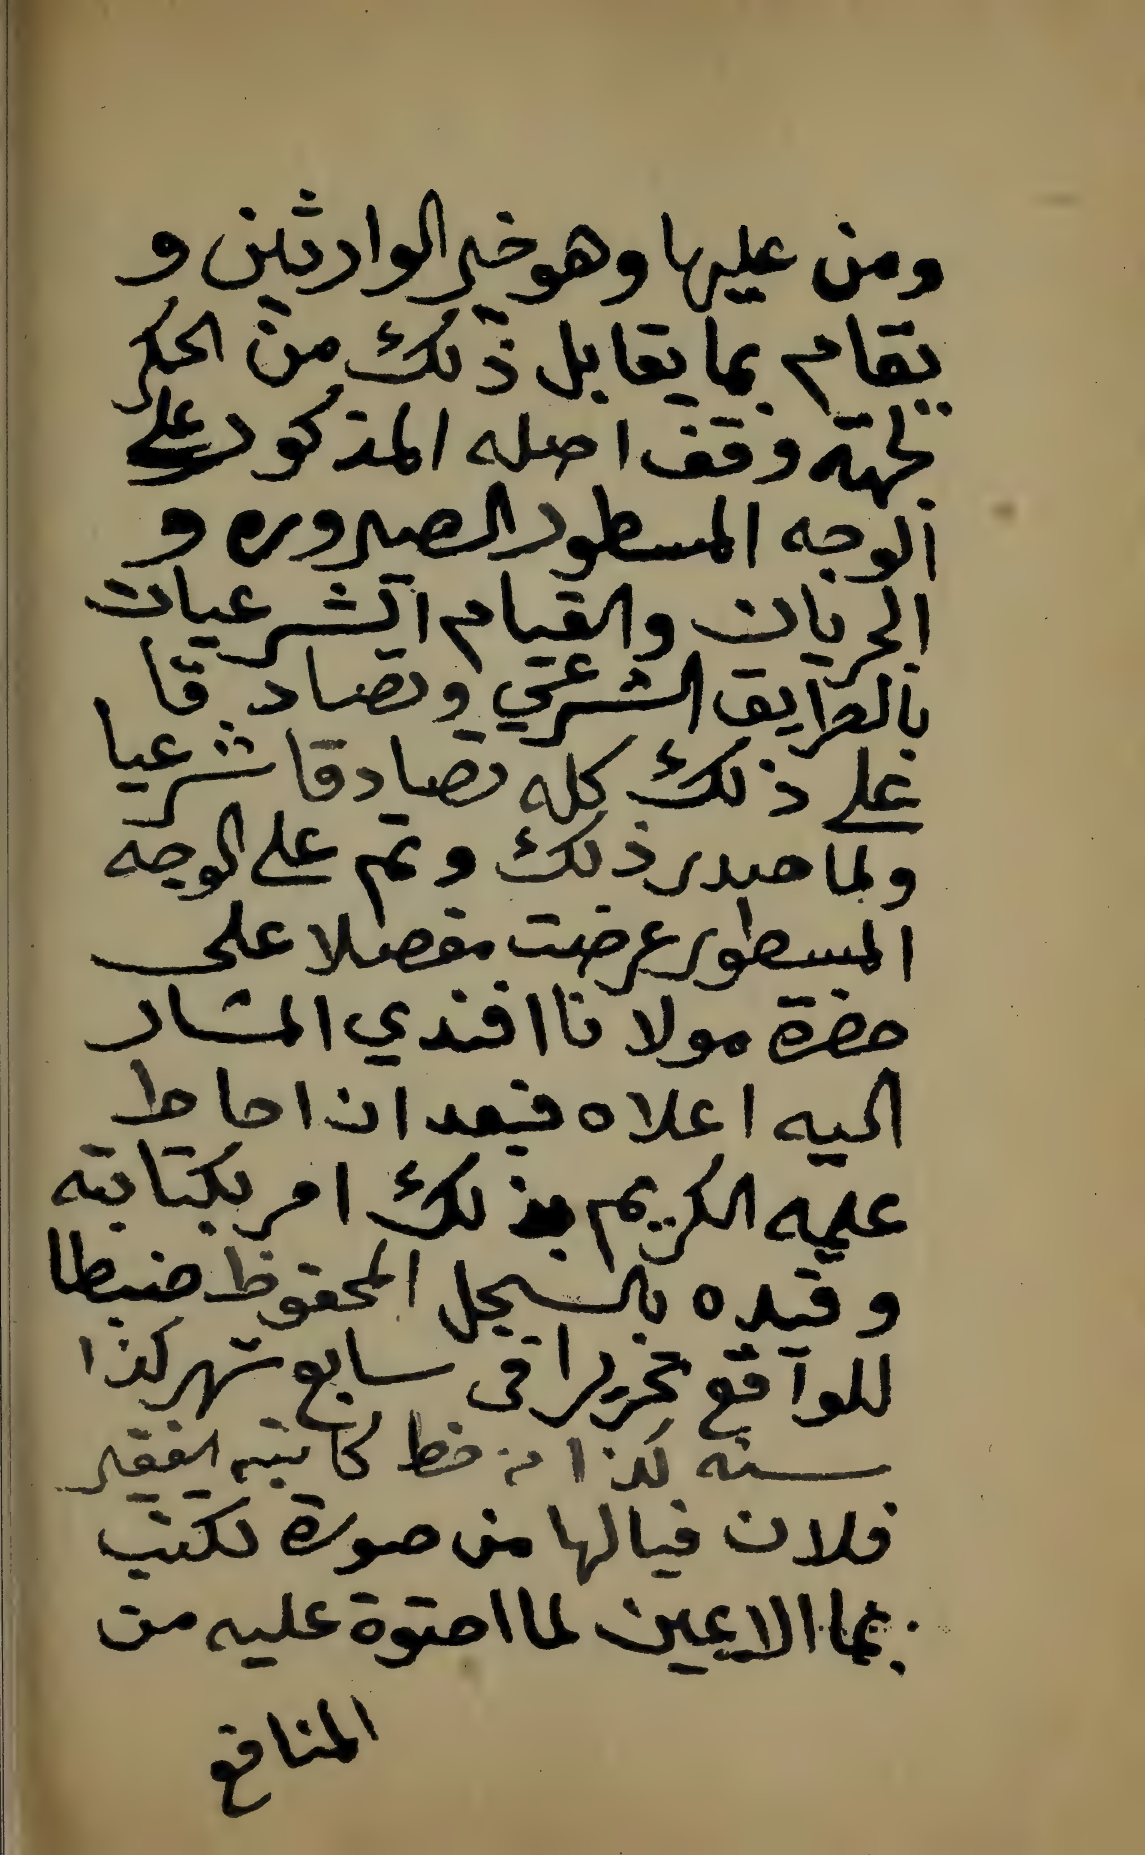 ومن عليها وهو خير الوارثين و
يقام بما يقابل ذلك من الحكر
لجهة وقف اصله المذكور على
الوجه المسطور الصيروره و
الجريان والقيام الشرعيات
بالطرايق الشرعي وتصادقا
على ذلك كله تصادقا شرعيا
ولما صدر ذلك وتم على الوجه
المسطور عرضت مفصلا على
حضرة مولانا افندي المشار
اليه اعلاه فبعد ان احاط
علمه الكريم بذلك امر بكتابته
وقيده بالسجل المحفوظ ضبطا
للواقع تحريرا في سابع شهر كذا
سنه كذا من خط كاتبه الفقير
فلان فيالها من صورة تكتب
بما الاعين لما احتوة عليه من
المنافع